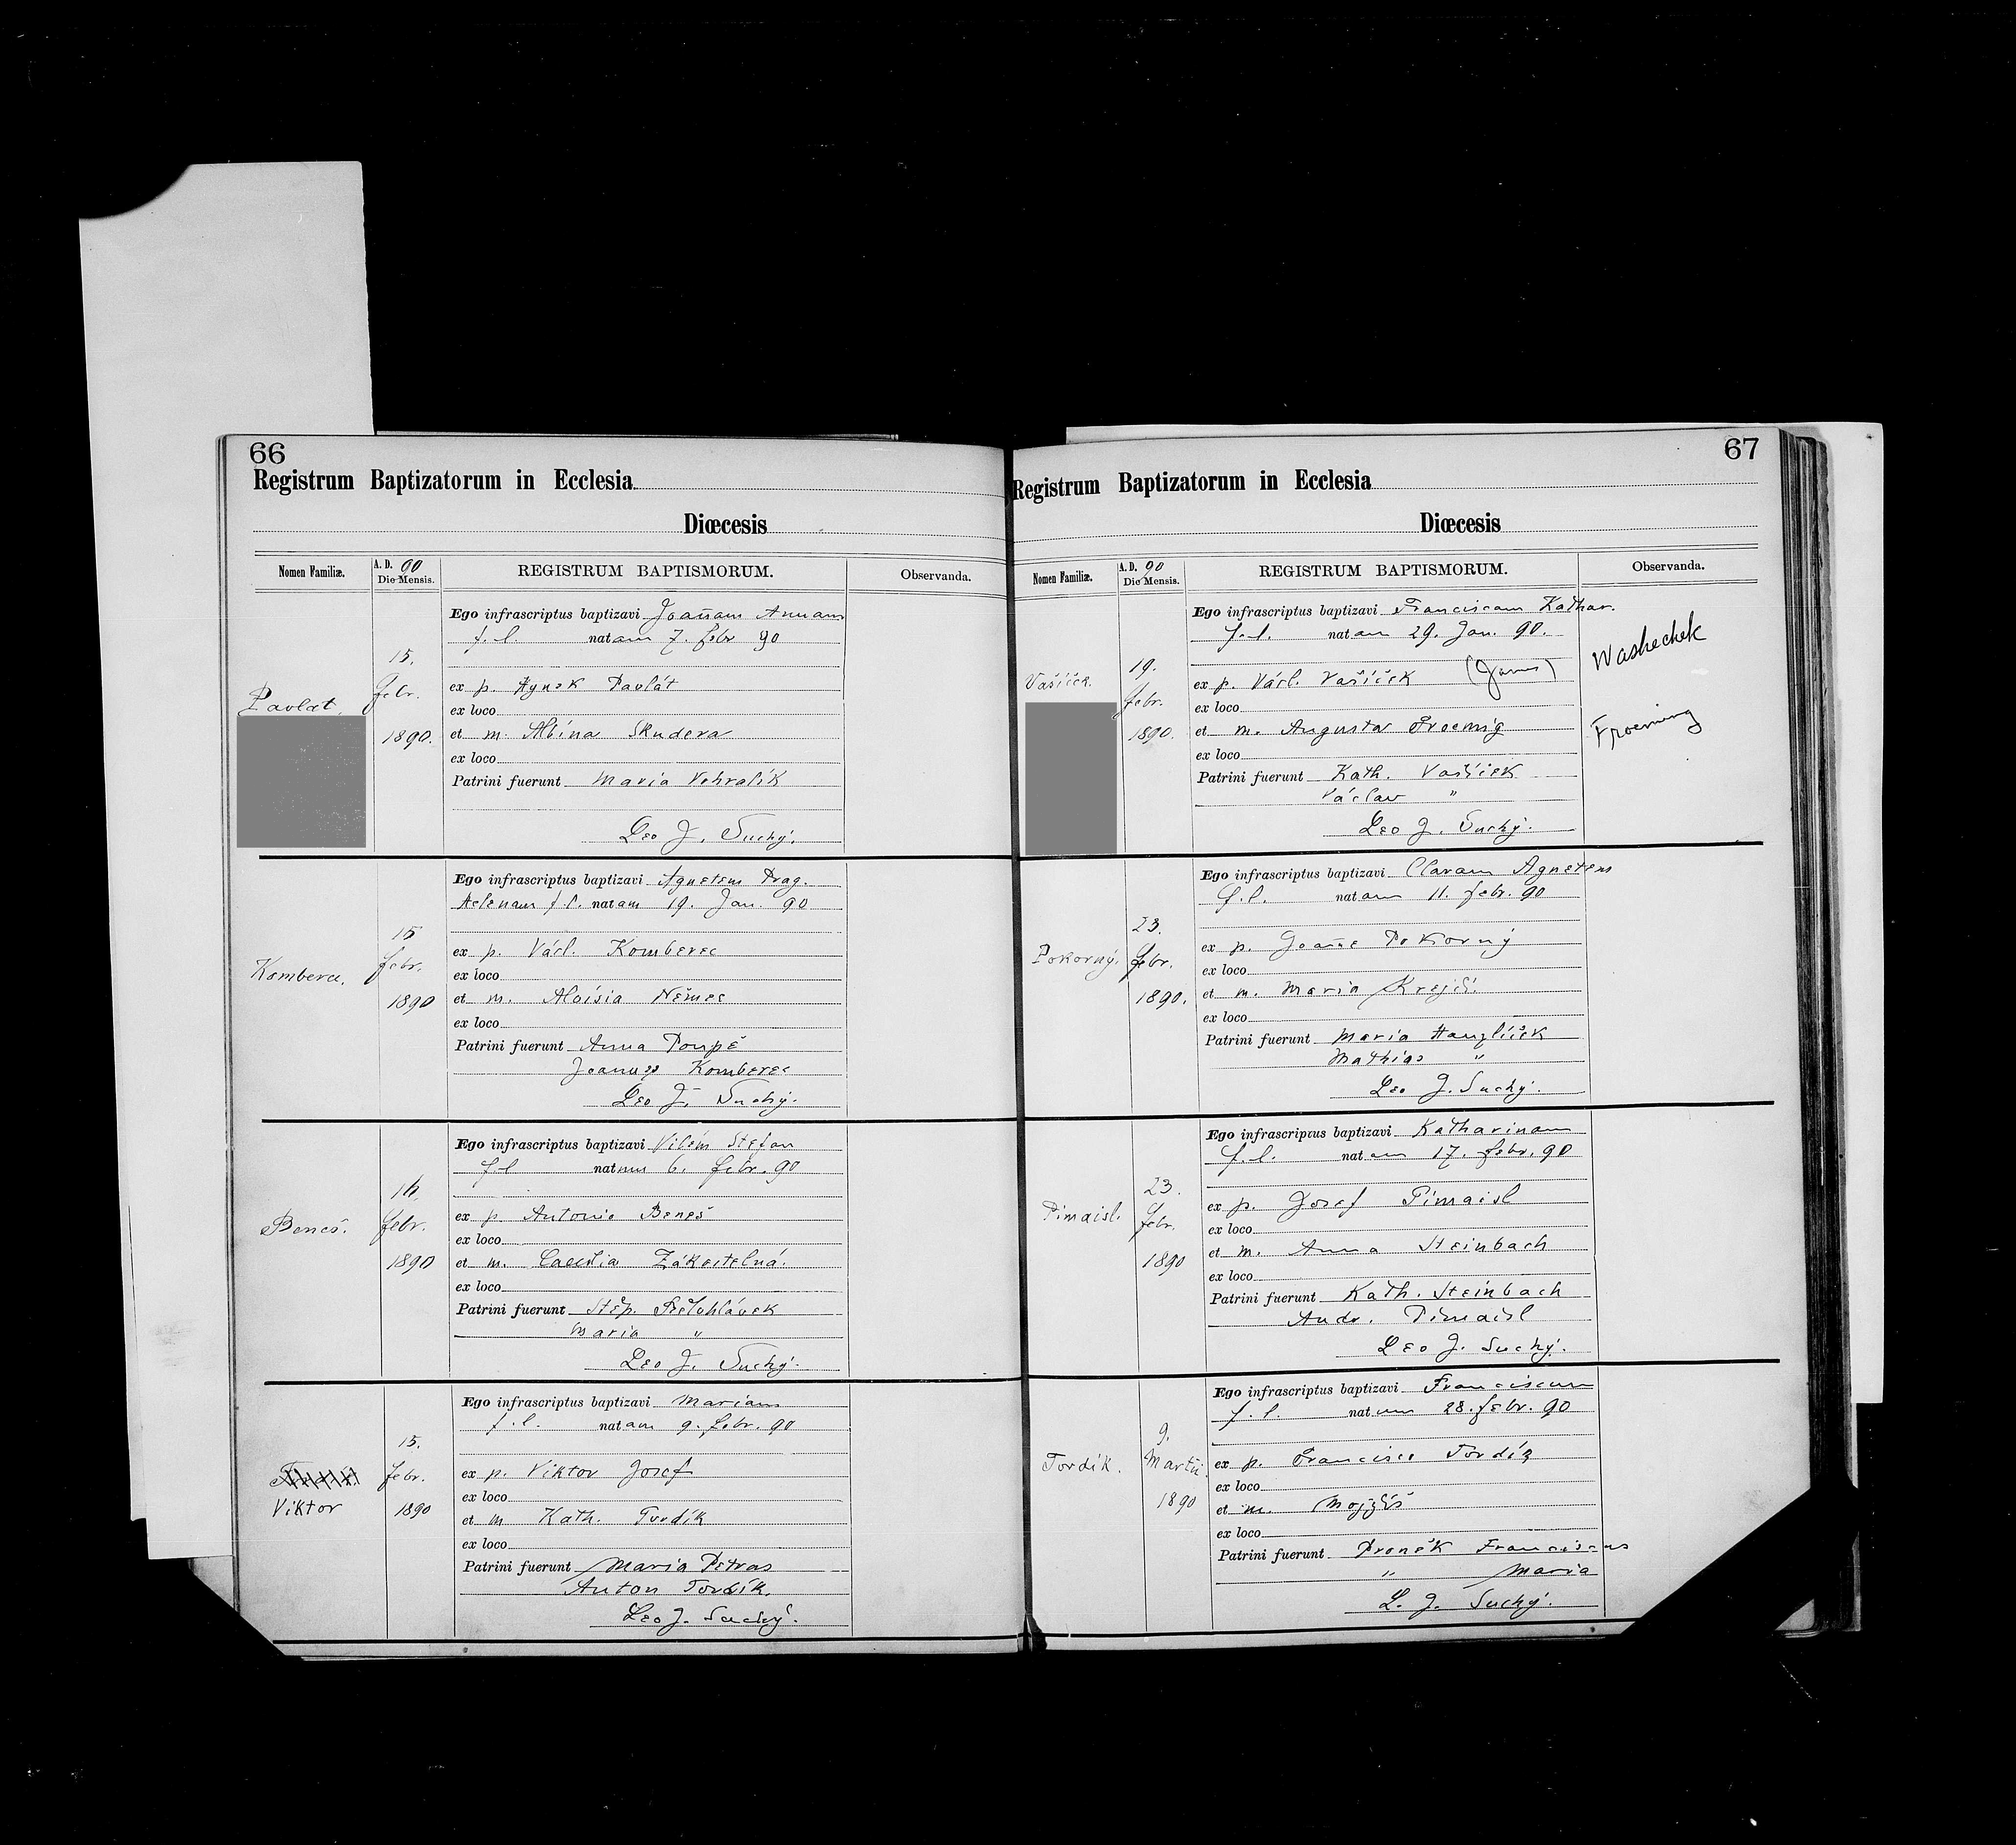 66
Registrum Baptizatorum in Ecclesia
Diœcesis
Nomen Familiæ.
A. D. 90
Die Mensis.
REGISTRUM BAPTISMORUM.
Observanda.
Pavlat.
15.
febr.
1890.
Ego infrascriptus baptizavi Joañam Annam
f. l. natam 7. febr 90
ex p. Hynek Pavlát
ex loco
et m. Albina Skudera
ex loco
Patrini fuerunt Maria Vohralík
Leo J. Suchý.
Komberec.
15
febr.
1890
Ego infrascriptus baptizavi Agnetem Prag.
Helenam f. l. natam 19. Jan. 90
ex p. Václ. Komberec
ex loco
et m. Aloisia Němec
ex loco
Patrini fuerunt Anna Poupě
Joannes Komberec
Leo J. Suchý.
Beneš.
16.
febr.
1890
Ego infrascriptus baptizavi Vilém Štefan
f. l natum 6. febr. 90
ex p. Antonio Beneš
ex loco
et m. Caecilia Zákostelná.
ex loco
Patrini fuerunt Štěp. Bělohlávek
Maria "
Leo J. Suchý.
Viktor
15.
febr.
1890
Ego infrascriptus baptizavi Mariam
f. l. natam 9. febr. 90
ex p. Viktor Josef
ex loco
et m Kath. Tvrdík
ex loco
Patrini fuerunt Maria Petras
Anton Tvrdík.
Leo J. Suchý.
67
Registrum Baptizatorum in Ecclesia
Diœcesis
Nomen Familiæ.
A. D. 90
Die Mensis.
REGISTRUM BAPTISMORUM.
Observanda.
Vašíček.
19.
febr.
1890.
Ego infrascriptus baptizavi Franciscam Kathar.
f. l. natam 29. Jan. 90.
ex p. Václ. Vašíček (James)
ex loco
et m. Augusta Froemig
ex loco
Patrini fuerunt Kath. Vašíček
Václav "
Leo J. Suchý.
Washechek
Froeming
Pokorný.
23.
febr.
1890.
Ego infrascriptus baptizavi Claram Agnetem
f. l. natam 11. febr. 90
ex p. Joañe Pokorný
ex loco
et m. Maria Krejčí.
ex loco
Patrini fuerunt Maria Hanzlíček
Mathias "
Leo J. Suchý.
Pimaisl.
23.
febr.
1890
Ego infrascriptus baptizavi Katharinam
f. l. natam 17. febr. 90
ex p. Josef Pimaisl
ex loco
et m. Anna Steinbach
ex loco
Patrini fuerunt Kath. Steinbach
Andr. Pimaisl
Leo J. Suchý.
Tvrdík.
9.
Martii.
1890
Ego infrascriptus baptizavi Franciscum
f. l. natum 28. febr. 90
ex p. Francisco Tvrdík
ex loco
et m. Mojžíš
ex loco
Patrini fuerunt Proněk Franciscus
" Maria
L. J. Suchý.